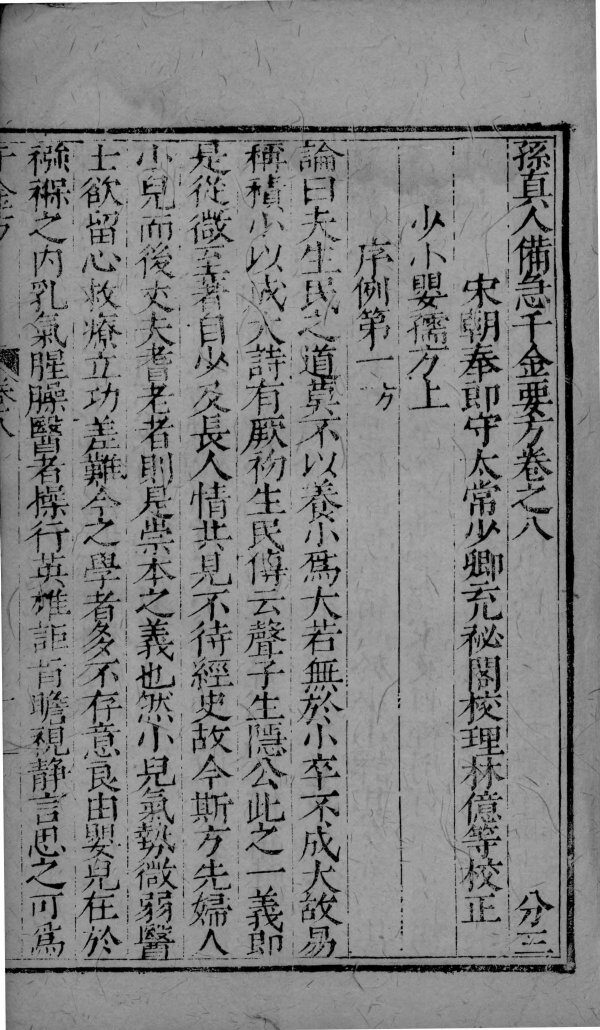 孫真人備急千金要方卷之八 分三
宋朝奉郎守太常少卿充秘閣校理林億等校正
少小嬰孺方上
序例第一 方
論曰夫生民之道莫不以養小爲大若無於小卒不成大故易
稱積小以成大詩有厥初生民傳云聲子生隱公此之一義即
是從微至著自少及長人情共見不待經史故今斯方先婦人
小兒而後丈夫耆老者則是崇本之義也然小兒氣勢微弱醫
士欲留心救療立功差難今之學者多不存意良由嬰兒在於
襁褓之內乳氣腥臊醫者操行英雄詎肯瞻視靜言思之可爲
千金方 卷八